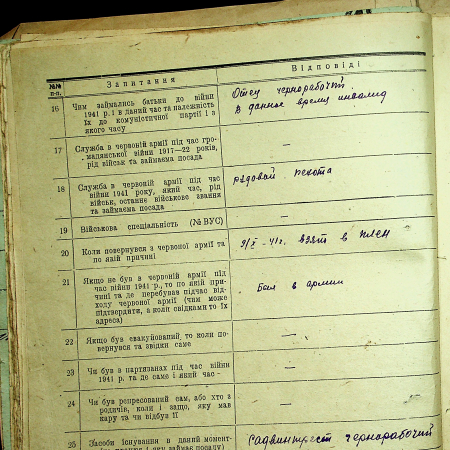 №№
п-п.
Запитання
Відповіді
16
Чим займались батьки до війни
1941 р. і в даний час та належність
їх до комуністичної партії і з
якого часу
Отец чернорабочий
В данное время инвалид
17
Служба в червоній армії під час гро-
мадянської війни 1917—22 років,
рід військ та займаєма посада
—
18
Служба в червоній армії під час
війни 1941 року, який час, рід
військ, останнє військове звання
та займаєма посада
рядовой пехота
19
Військова спеціальність (№ ВУС)
—
20
Коли повернувся з червоної армії та
по якій причині
-41г. взят в плен
21
Якщо не був в червоній армії під
час війни 1941 р., то по якій при-
чині та де перебував підчас відходу
червоної армії (чим може
підтвердити, а коли свідками то їх
адреса)
Был в армии
22
Якщо був евакуйований, то коли по-
вернувся та звідки саме
—
23
Чи був в партизанах під час війни
1941 р. та де саме і який час -
—
24
Чи був репресований сам, або хто з
родичів, коли і защо, яку мав
кару та чи відбув її
—
25
Засоби існування в даний момент-
і яку займає посаду)
чернорабочий